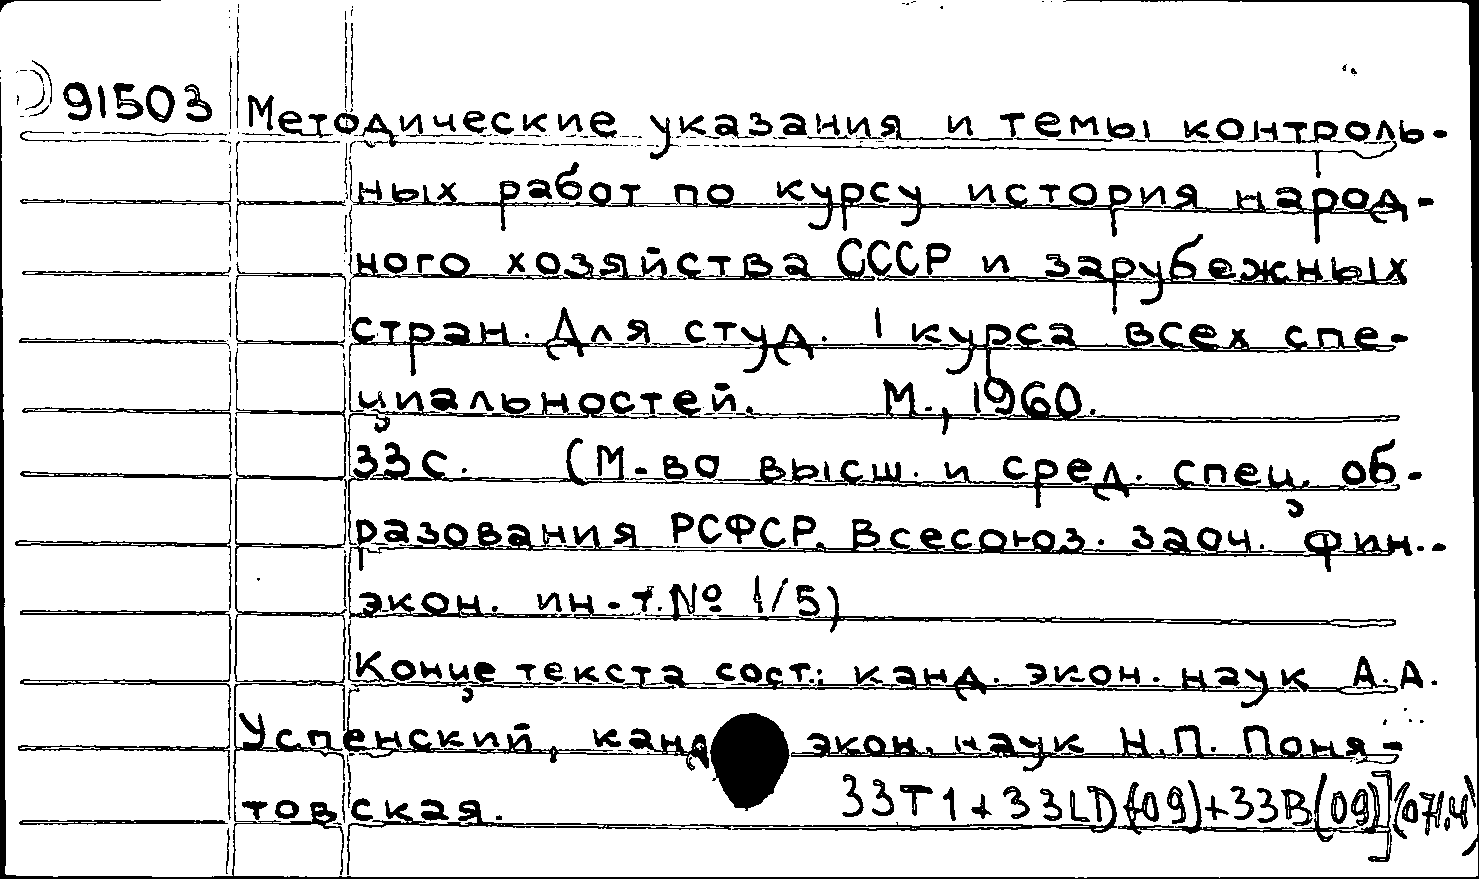 91503 Методические указания и темы контроль-
ных работ по курсу история народ-
ного хозяйства СССР и зарубежных
стран. Для студ. I курса всех спе-
циальностей. М., 1960.
33с. (М-во высш. и сред. спец. об-
разования РСФСР. Всесоюз. заоч. фин.-
экон. ин-т. № 1/5)
Конце текста сост.: канд. экон. наук А.А.
Успенский, канд экон. наук Н.П. Поня-
товская. 33Т1+33LD(09)+33В(09)](071.4)